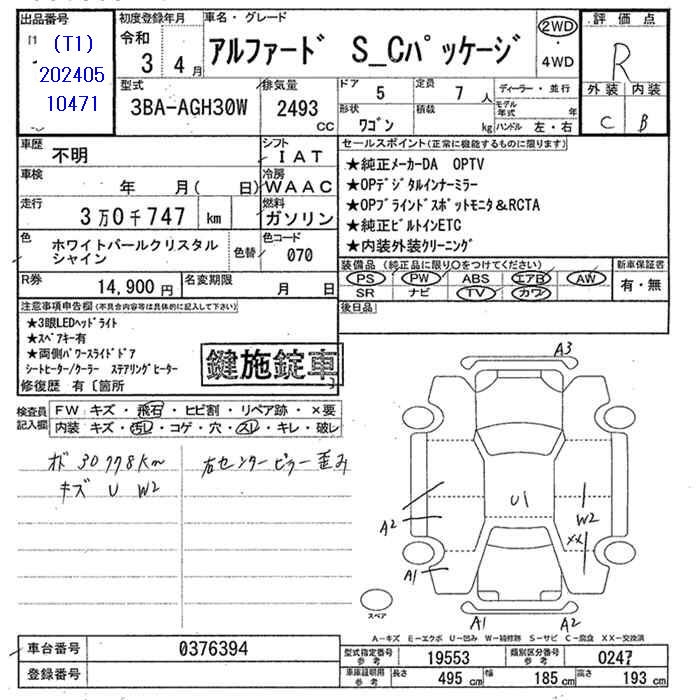 出品番号 初度登録年月 車名・グレード 2WD・4WD 評価点
(T1)
202405
10471
令和 3 4月 アルファード S_Cパッケージ R
外装 内装
C B
型式 排気量 ドア 定員 ディーラー・並行
3BA-AGH30W 2493 cc 5 7 人 モデル年式 年
形状 積載
ワゴン kg ハンドル 左・右
車歴 不明 シフト IAT
車検 年 月( 日) 冷房 WAAC
走行 3万0千747 km 燃料 ガソリン
色 ホワイトパールクリスタル
シャイン 色替 色コード 070
R券 14,900円 名変期限 月 日
セールスポイント(正常に機能するものに限ります)
★純正メーカーDA OPTV
★OPデジタルインナーミラー
★OPブラインドスポットモニタ&RCTA
★純正ビルトインETC
★内装外装クリーニング
装備品 (純正品に限り○をつけてください) 新車保証書
PS PW ABS エアB AW 有・無
SR ナビ TV カワ
後日品
注意事項申告欄(不具合内容等は具体的に記入して下さい)
★3眼LEDヘッドライト
★スペアキー有
★両側パワースライドドア
シートヒーター/クーラー ステアリングヒーター
鍵施錠車
修復歴 有〔箇所 〕
検査員記入欄
FW キズ・飛石・ヒビ割・リペア跡・×要
内装 キズ・汚レ・コゲ・穴・スレ・キレ・破レ
オド 30778km 右センターピラー歪み
キズ U W2
A3
U1
W2
XX
A2
A1
A1
A2
スペア
A-キズ E-エクボ U-凹み W-補修跡 S-サビ C-腐食 XX-交換済
車台番号 0376394
登録番号
型式指定番号 参考 19553 類別区分番号 参考 0247
車庫証明用 参考 長さ 495 cm 幅 185 cm 高さ 193 cm